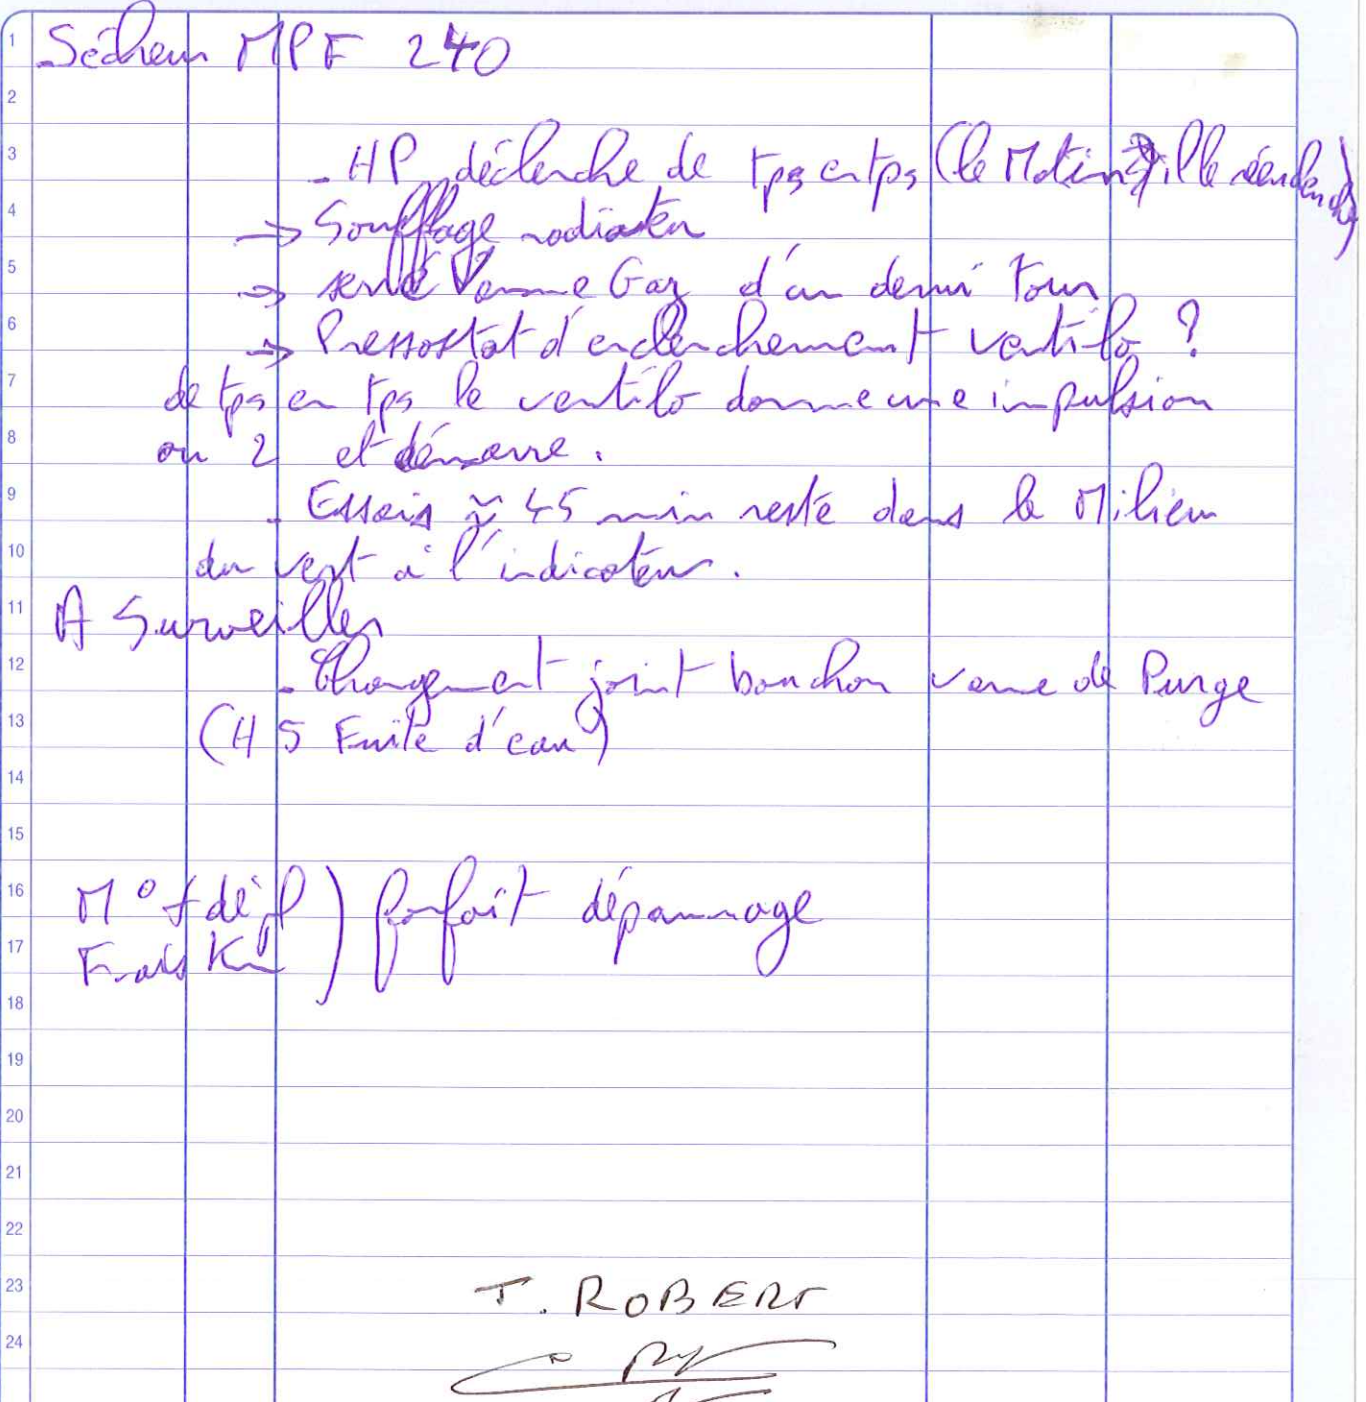 1 Sécheur MPF 240
2
3 - HP déclenche de tps en tps (le Matin, ille réenclenche)
4 → Soufflage radiateur
5 → serré Vanne Gaz d'un demi Tour
6 → Pressostat d'enclenchement ventilo ?
7 de tps en tps le ventilo donne une impulsion
8 ou 2 et démarre.
9 - Essais ≈ 45 min resté dans le Milieu
10 du vert à l'indicateur.
11 A Surveiller
12 - Changement joint bouchon vanne de Purge
13 (HS Fuite d'eau)
14
15
16 M° + dépl ) forfait dépannage
17 Frais Km
18
19
20
21
22
23 T. ROBERT
24